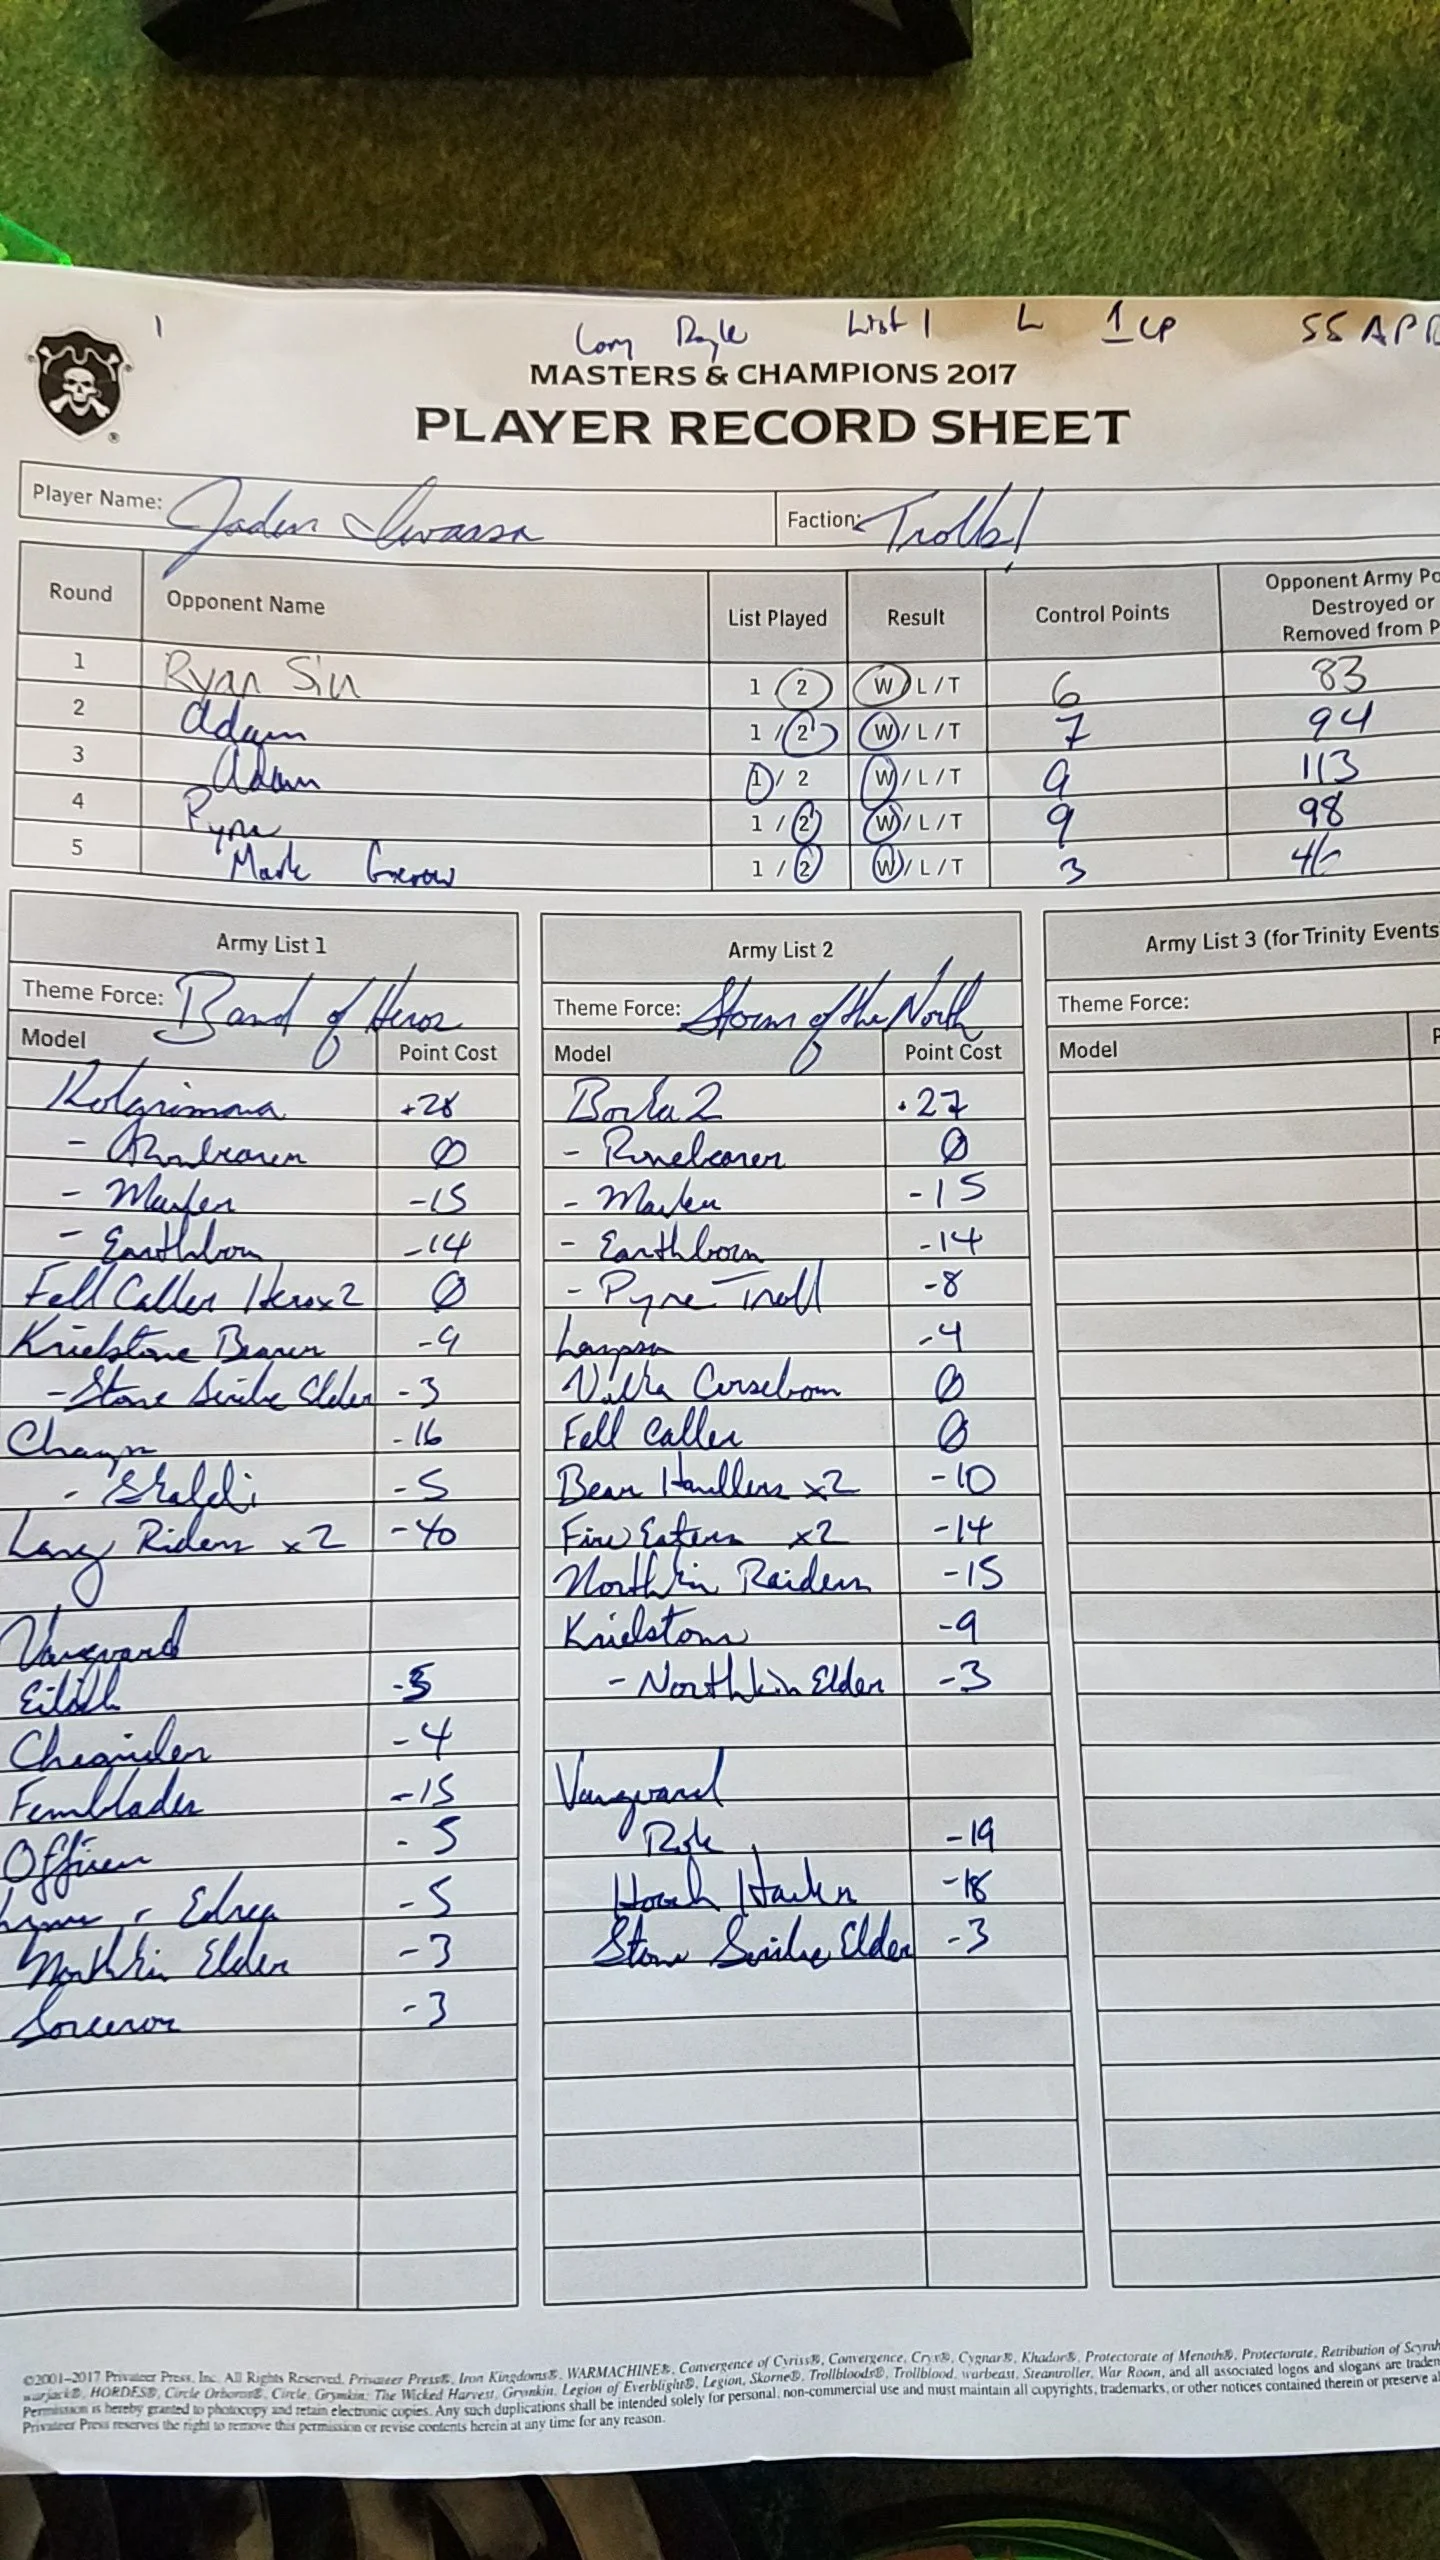 1 List 1 L 1 CP 55 AP
MASTERS & CHAMPIONS 2017
PLAYER RECORD SHEET
Player Name: Jaden Iwaasa Faction: Trolls!
Round Opponent Name List Played Result Control Points Opponent Army Po
Destroyed or
Removed from P
1 Ryan Siu 1 / 2 W / L / T 6 83
2 Adam 1 / 2 W / L / T 7 94
3 Adam 1 / 2 W / L / T 9 113
4 1 / 2 W / L / T 9 98
5 Mark 1 / 2 W / L / T 3 46
Army List 1
Theme Force: Band of Heros
Model Point Cost
Kolgrimma +28
- Runebearer 0
- Mauler -15
- Earthborn -14
Fell Caller Hero x2 0
Krielstone Bearer -9
- Stone Scribe Elder -3
Champs -16
- Skaldi -5
Long Riders x2 -40
Vanguard
Eilish -5
Chronicler -4
Fennblades -15
Officer -5
Edrea -5
Northkin Elder -3
Sorceror -3
Army List 2
Theme Force: Storm of the North
Model Point Cost
Borka 2 +27
- Runebearer 0
- Mauler -15
- Earthborn -14
- Pyre Troll -8
-4
Valka Curseborn 0
Fell Caller 0
Bear Handlers x2 -10
Fire Eaters x2 -14
Northkin Raiders -15
Krielstone -9
- Northkin Elder -3
Vanguard
Rok -19
-18
Stone Scribe Elder -3
Army List 3 (for Trinity Events
Theme Force:
Model P
©2001–2017 Privateer Press, Inc. All Rights Reserved. Privateer Press®, Iron Kingdoms®, WARMACHINE®, Convergence of Cyriss®, Convergence, Cryx®, Cygnar®, Khador®, Protectorate of Menoth®, Protectorate, Retribution of Scyrah
warjack®, HORDES®, Circle Orboros®, Circle, Grymkin: The Wicked Harvest, Grymkin, Legion of Everblight®, Legion, Skorne®, Trollbloods®, Trollblood, warbeast, Steamroller, War Room, and all associated logos and slogans are tradem
Permission is hereby granted to photocopy and retain electronic copies. Any such duplications shall be intended solely for personal, non-commercial use and must maintain all copyrights, trademarks, or other notices contained therein or preserve al
Privateer Press reserves the right to remove this permission or revise contents herein at any time for any reason.